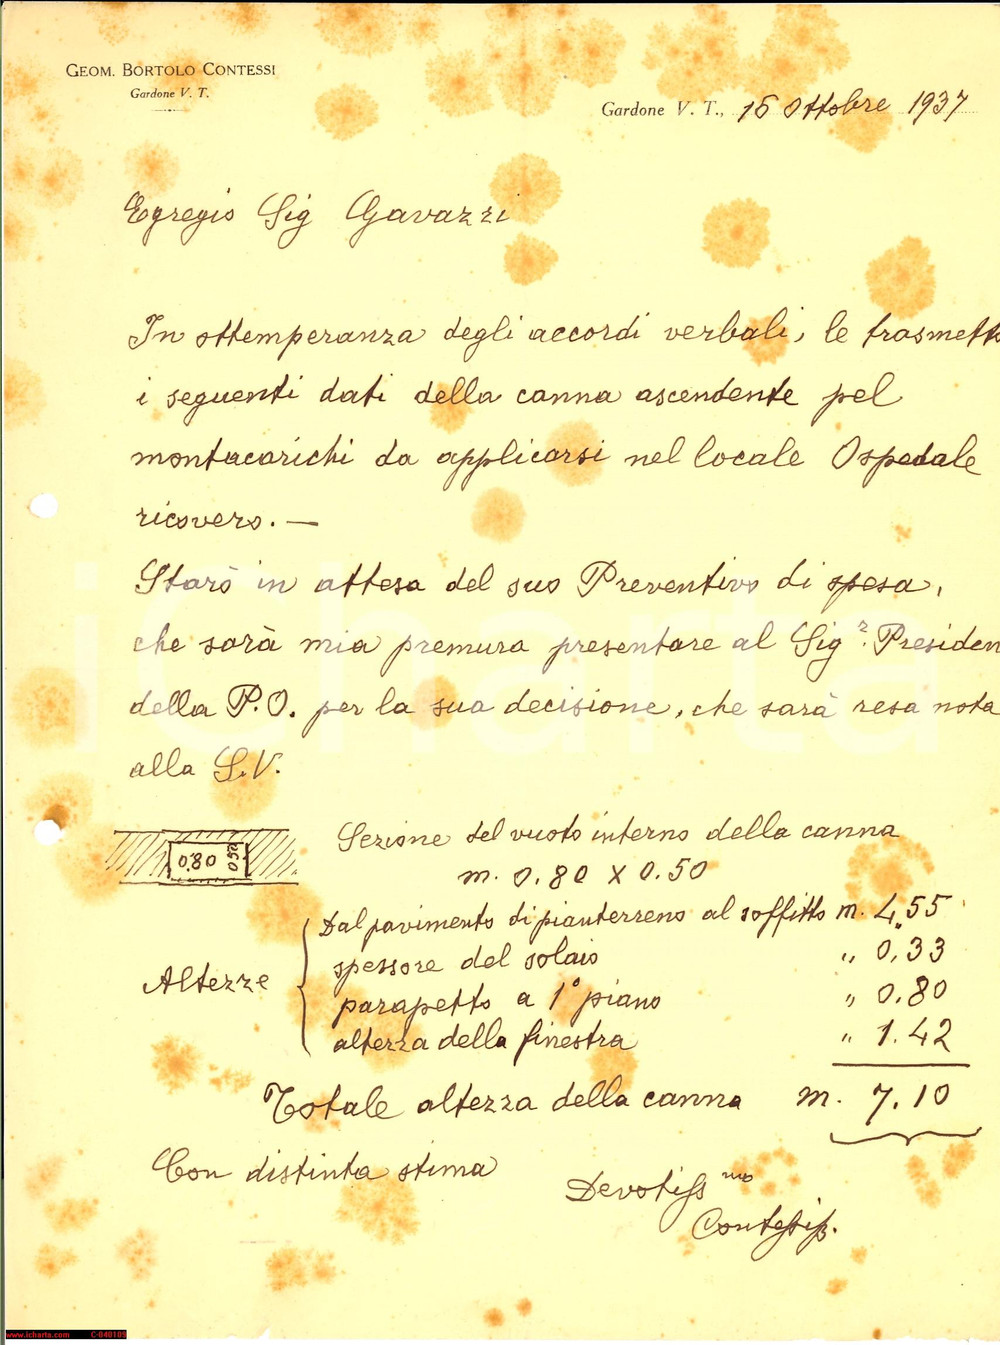 GEOM. BORTOLO CONTESSI
Gardone V. T.
Gardone V. T., 15 Ottobre 1937
Egregio Sig Gavazzi
In ottemperanza degli accordi verbali, le trasmetto
i seguenti dati della canna ascendente pel
montacarichi da applicarsi nel locale Ospedale
ricovero. —
Starò in attesa del suo Preventivo di spesa,
che sarà mia premura presentare al Sigr. Presiden
della P.O. per la sua decisione, che sarà resa nota
alla S.V.
Sezione del vuoto interno della canna
0.80 0.50
m. 0.80 X 0.50
Dal pavimento di pianterreno al soffitto m. 4,55
spessore del solaio " 0,33
Altezze
parapetto a 1° piano " 0.80
altezza della finestra " 1.42
Totale altezza della canna m. 7.10
Con distinta stima
Devotissmo
www.icharta.com C-040109
iCharta